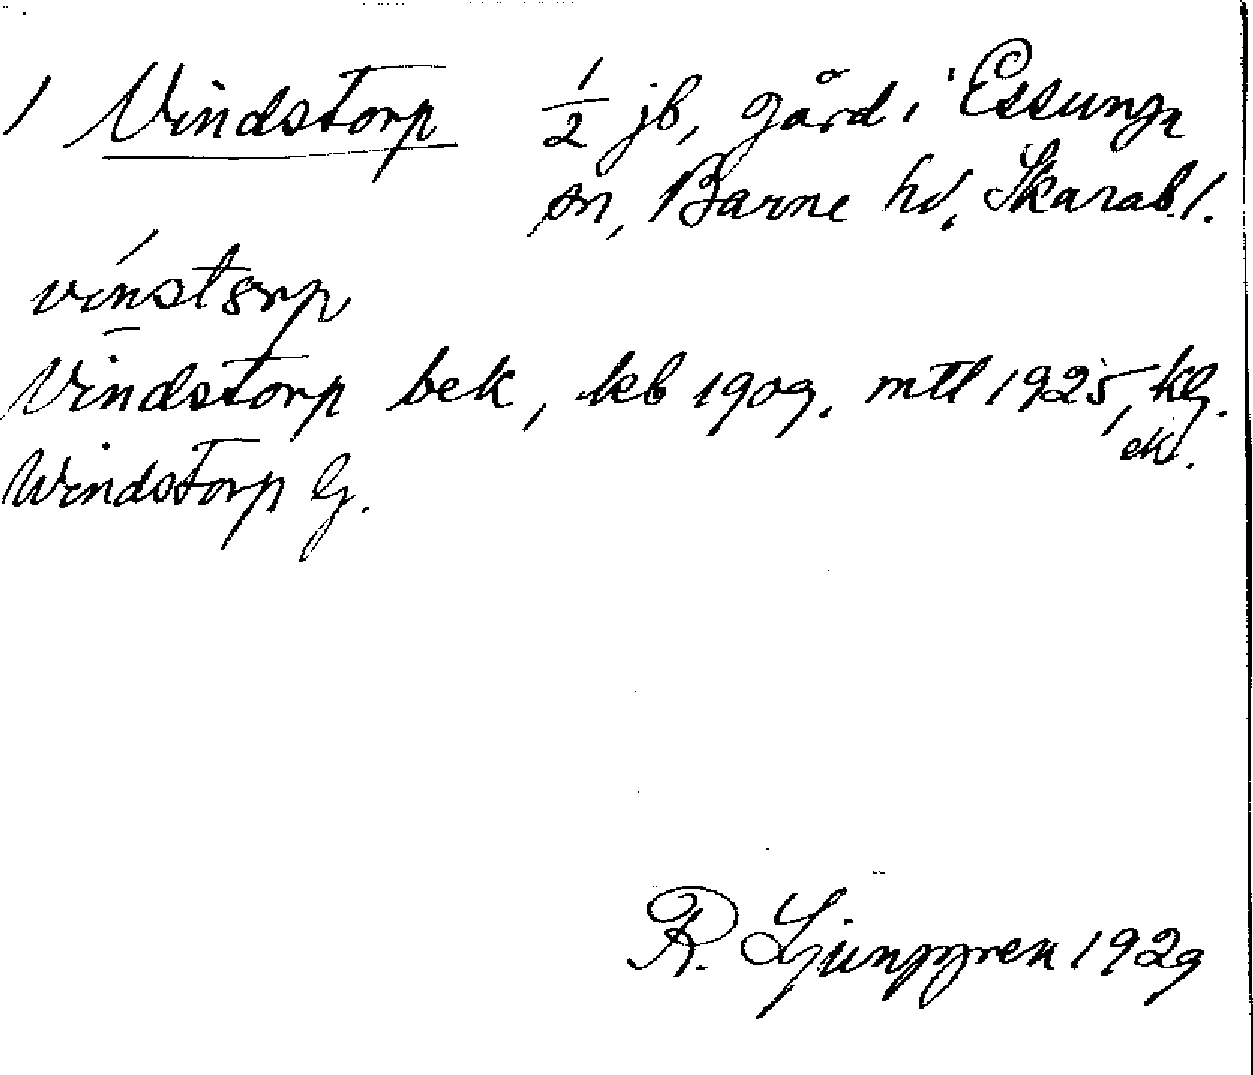 1 Vindstorp 1/2 jb, gård i Essunga
sn, Barne hd, Skarab.l.
vinstorp
Vindstorp bek, kb 1909, mtl 1925, kg.
ek.
Windstorp G.
R. Ljunggren 1929